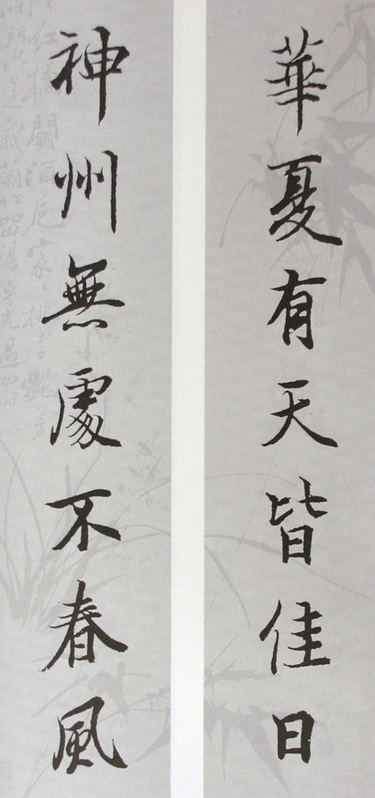 華夏有天皆佳日
神州無處不春風